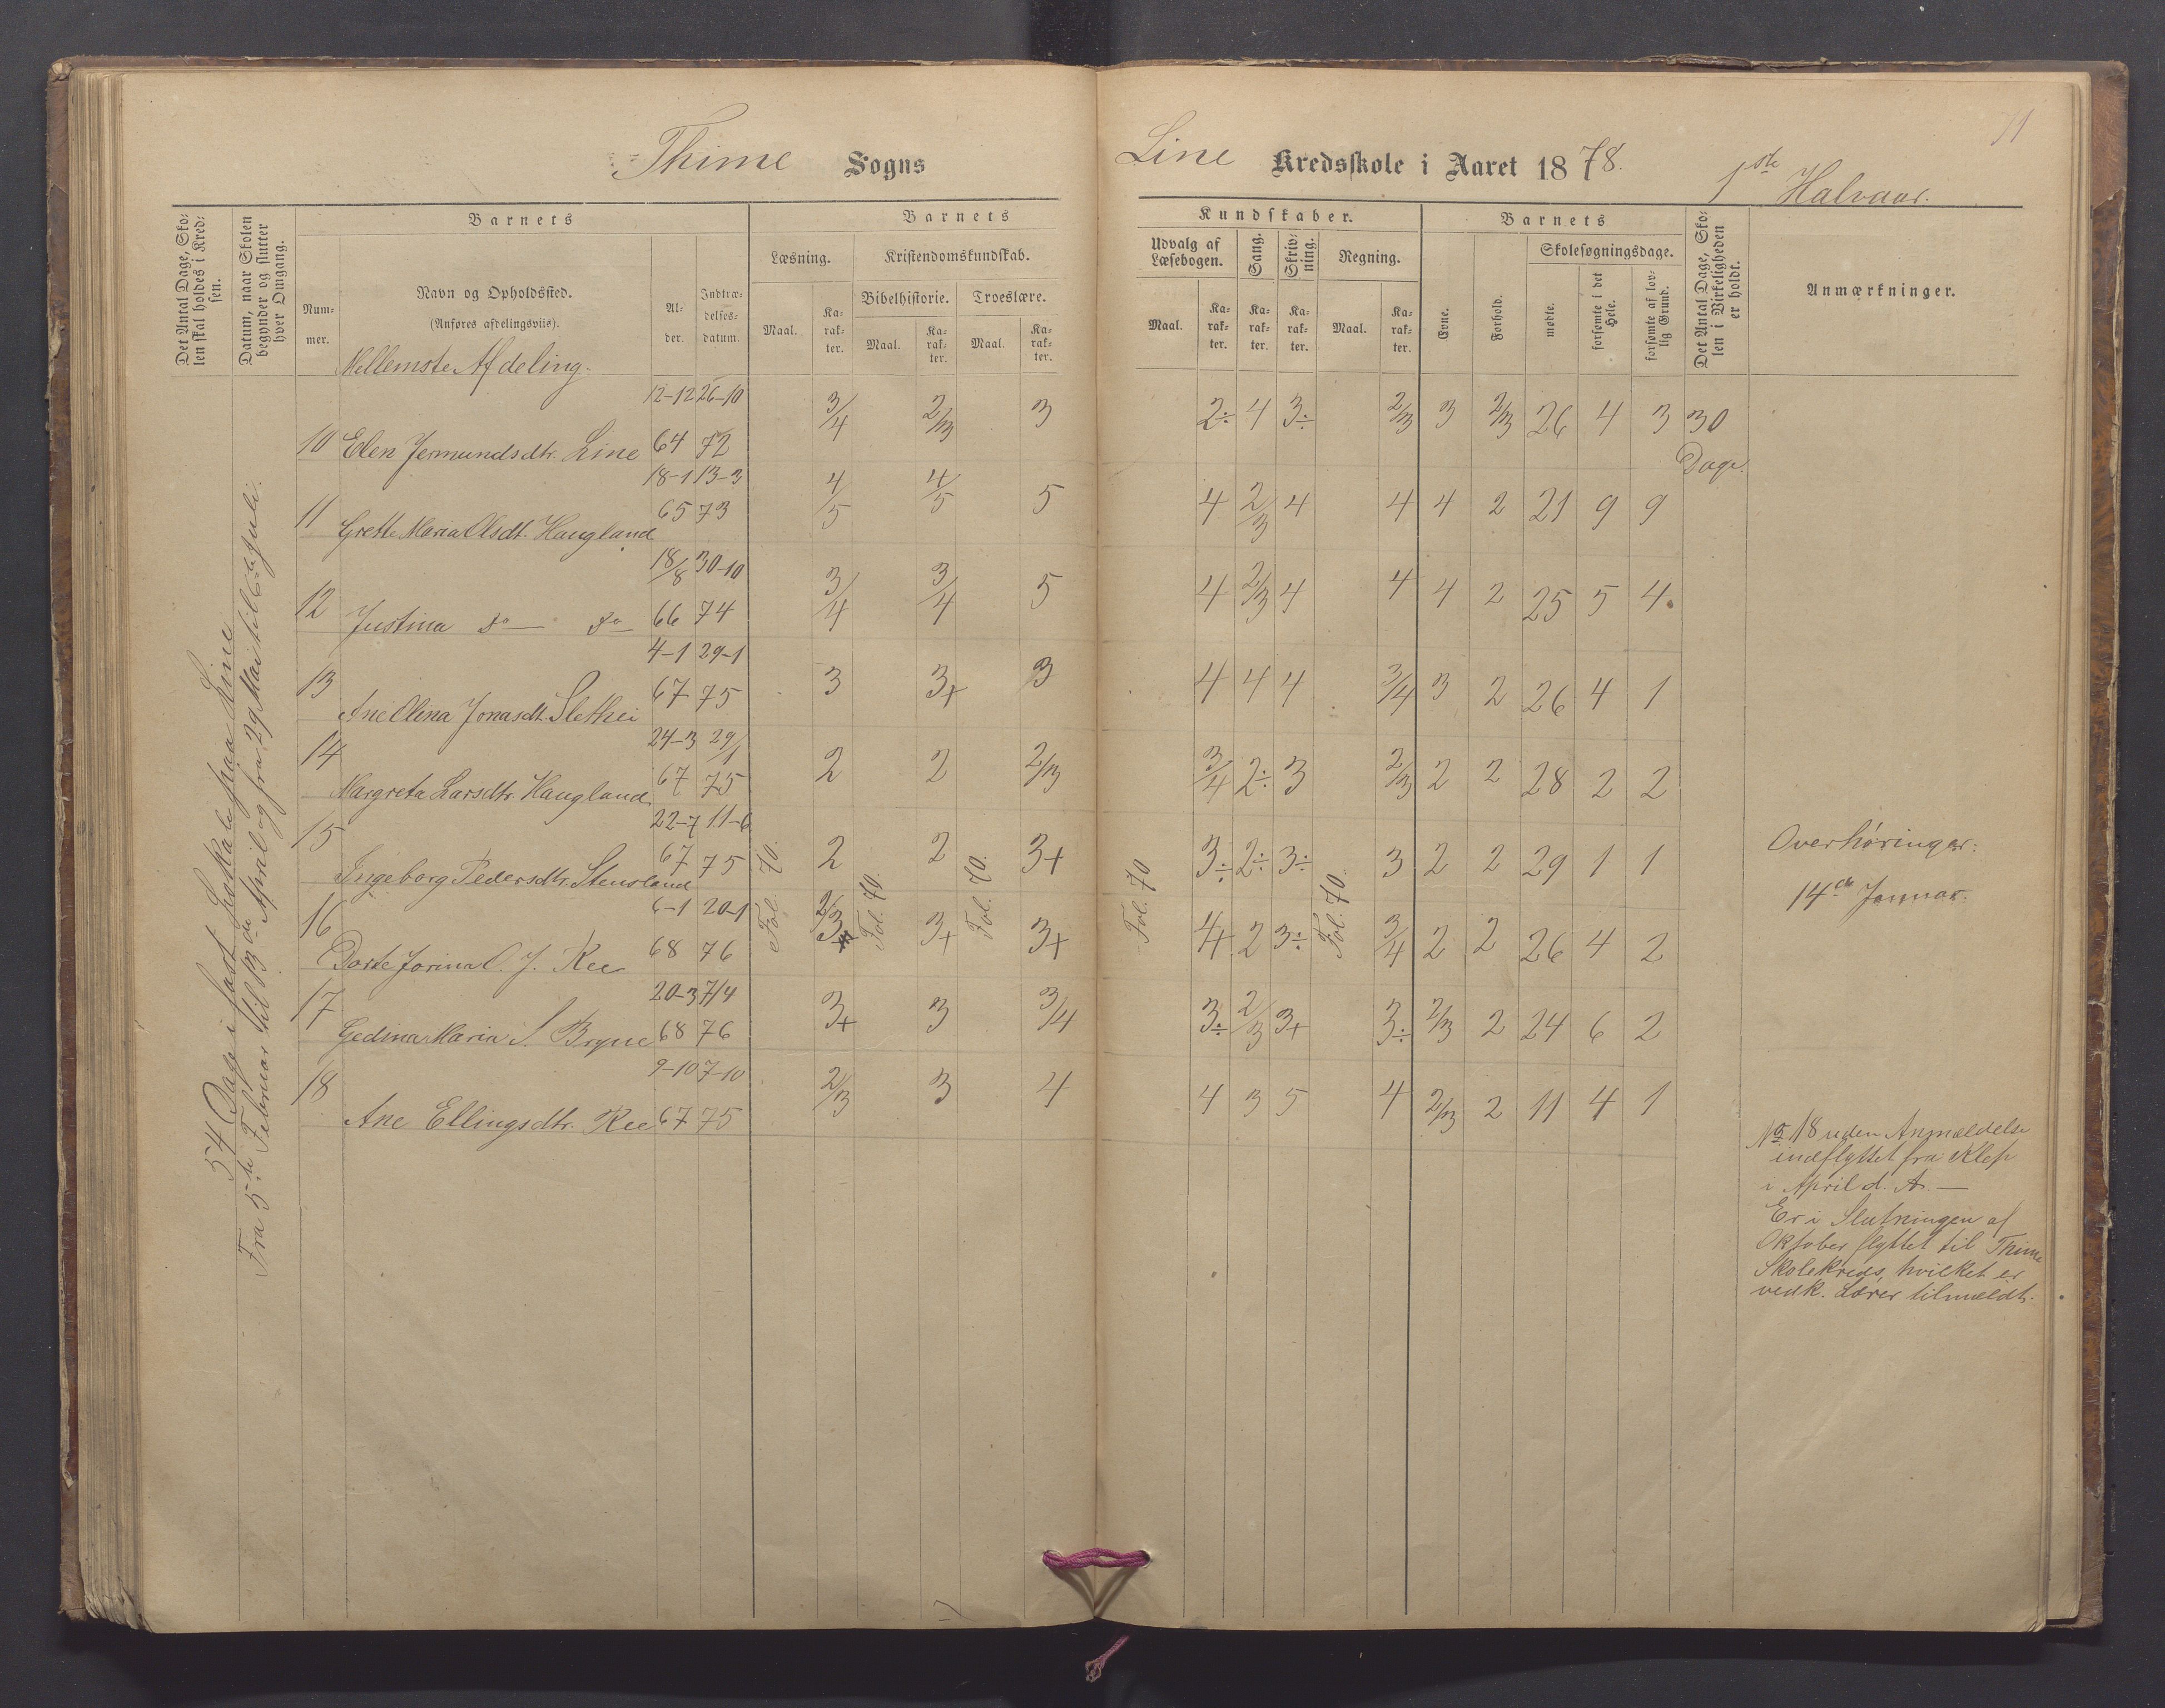 Thime Sogns
Line Kredsskole i Aaret 1878.
1ste Halvaar.
71
Det Antal Dage, Skolen skal holdes i Kredsen.
Datum, naar Skolen begynder og slutter hver Omgang.
Barnets
Nummer.
Navn og Opholdssted.
(Anføres afdelingsviis).
Alder.
Indtrædelsesdatum.
Barnets
Læsning.
Kristendomskundskab.
Bibelhistorie.
Troeslære.
Maal.
Karakter.
Maal.
Karakter.
Maal.
Karakter.
Kundskaber.
Udvalg af Læsebogen.
Sang.
Skrivning.
Regning.
Maal.
Karakter.
Karakter.
Karakter.
Maal.
Karakter.
Barnets
Evne.
Forhold.
Skolesøgningsdage.
mødte.
forsømte i det Hele.
forsømte af lovlig Grund.
Det Antal Dage, Skolen i Virkeligheden er holdt.
Anmærkninger.
Mellemste Afdeling.
54 Dage i fast Lokale paa Line
Fra 5te Februar til 13de April og fra 29 Mai til 6te Juli.
10 Elen Jermundsdtr. Line 12-12 64 26-10 72 3/4 2/3 3 2÷ 4 3÷ 2/3 3 2/3 26 4 3 30 Dage.
11 Grethe Maria Olsdt. Haugland 18-1 65 13-3 73 4/5 4/5 5 4 2/3 4 4 4 2 21 9 9
12 Justina do do 18/8 66 30-10 74 3/4 3/4 5 4 2/3 4 4 4 2 25 5 4
13 Ane Olina Jonasdt. Slethei 4-1 67 29-1 75 3 3+ 3 4 4 4 3/4 3 2 26 4 1
14 Margreta Larsdtr. Haugland 24-3 67 29/1 75 2 2 2/3 3/4 2÷ 3 2/3 2 2 28 2 2
15 Ingeborg Pedersdtr. Stensland 22-7 67 11-6 75 2 2 3+ 3÷ 2÷ 3÷ 3 2 2 29 1 1
16 Dorte Jorina O. J. Ree 6-1 68 20-1 76 2/3 3+ 3+ 4 2 3÷ 3/4 2 2 26 4 2
17 Gedina Maria S. Bryne 20-3 68 7/4 76 3+ 3 3/4 3÷ 2/3 3+ 3÷ 2/3 2 24 6 2
18 Ane Ellingsdtr. Ree 9-10 67 7-10 75 2/3 3 4 4 3 5 4 2/3 2 11 4 1
Fol. 70.
Fol. 70.
Fol. 70.
Fol. 70
Fol. 70.
Overhøringer:
14de Januar.
No 18 uden Anmældelse
indflyttet fra Klep
i April d. A. —
Er i Slutningen af
Oktober flyttet til Thime
Skolekreds, hvilket er
vedk. Lærer tilmeldt.